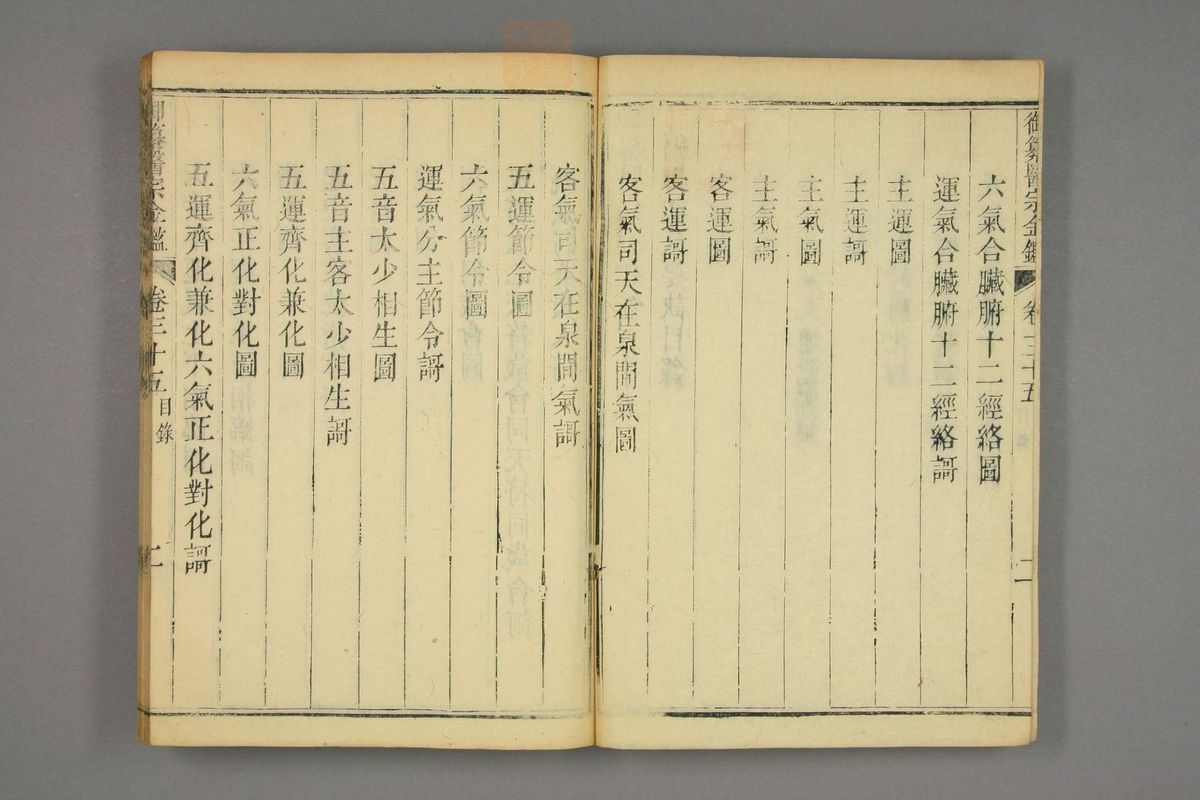 御纂醫宗金鑑 卷三十五 二
六氣合臟腑十二經絡圖
運氣合臟腑十二經絡謌
主運圖
主運謌
主氣圖
主氣謌
客運圖
客運謌
客氣司天在泉間氣圖
客氣司天在泉間氣謌
五運節令圖
六氣節令圖
運氣分主節令謌
五音太少相生圖
五音主客太少相生謌
五運齊化兼化圖
六氣正化對化圖
五運齊化兼化六氣正化對化謌
御纂醫宗金鑑 卷三十五 目錄 二